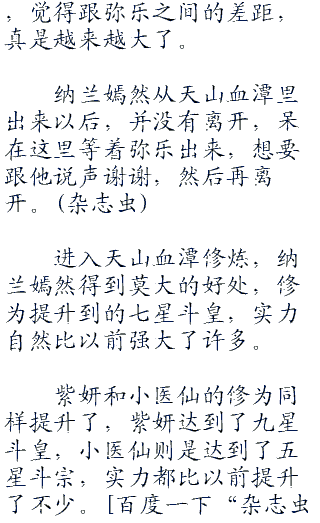 ，觉得跟弥乐之间的差距，
真是越来越大了。
纳兰嫣然从天山血潭里
出来以后，并没有离开，呆
在这里等着弥乐出来，想要
跟他说声谢谢，然后再离
开。(杂志虫)
进入天山血潭修炼，纳
兰嫣然得到莫大的好处，修
为提升到的七星斗皇，实力
自然比以前强大了许多。
紫妍和小医仙的修为同
样提升了，紫妍达到了九星
斗皇，小医仙则是达到了五
星斗宗，实力都比以前提升
了不少。[百度一下“杂志虫